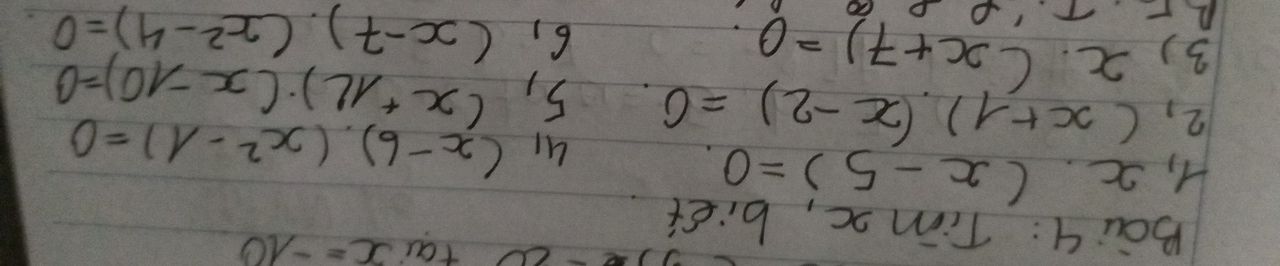 tại x = -10
Bài 4: Tìm x, biết
1, x. (x - 5) = 0. 4, (x - 6). (x² - 1) = 0
2, (x + 1). (x - 2) = 0. 5, (x + 12). (x - 10) = 0
3) x. (x + 7) = 0. 6, (x - 7). (x² - 4) = 0